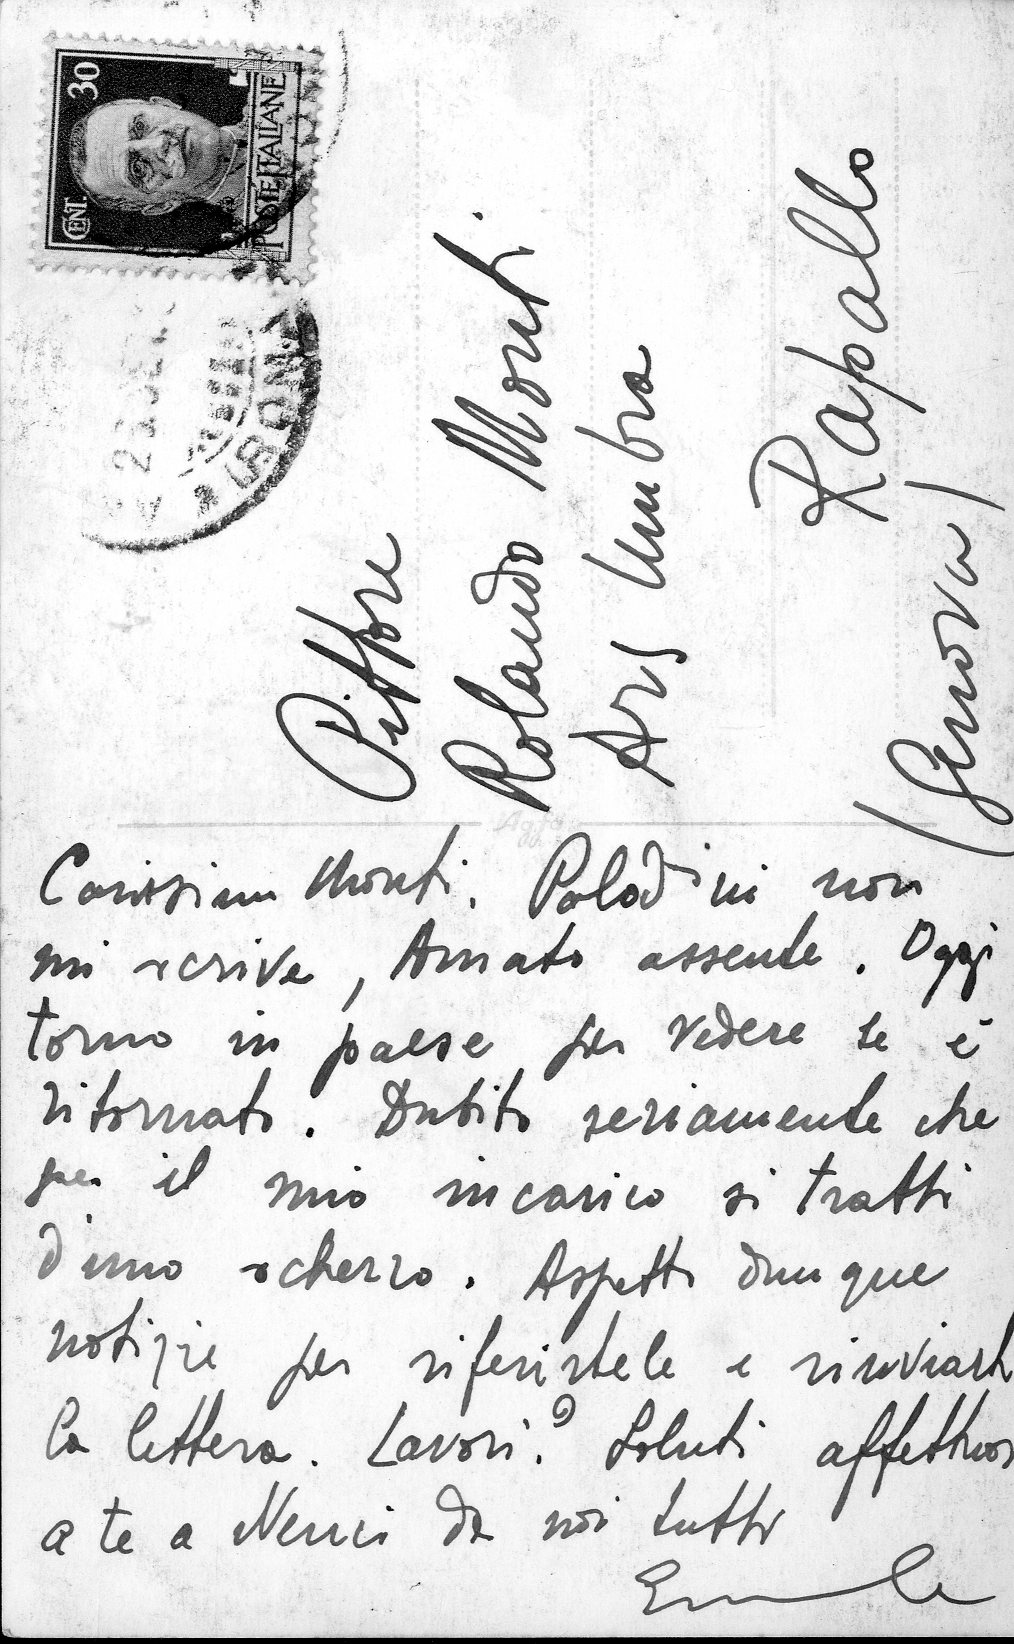 CENT. 30
POSTE ITALIANE
Pittore
Rolando Monti
Ars Umbra
Rapallo
(Genova)
Agfa
Carissimo Monti. Paladini non
mi scrive, Amato assente. Oggi
torno in paese per vedere se è
ritornato. Dubito seriamente che
per il mio incarico si tratti
d'uno scherzo. Aspetto dunque
notizie per riferirtele e rinviarti
la lettera. Lavori? Saluti affettuosi
a te a Nenci da noi tutti